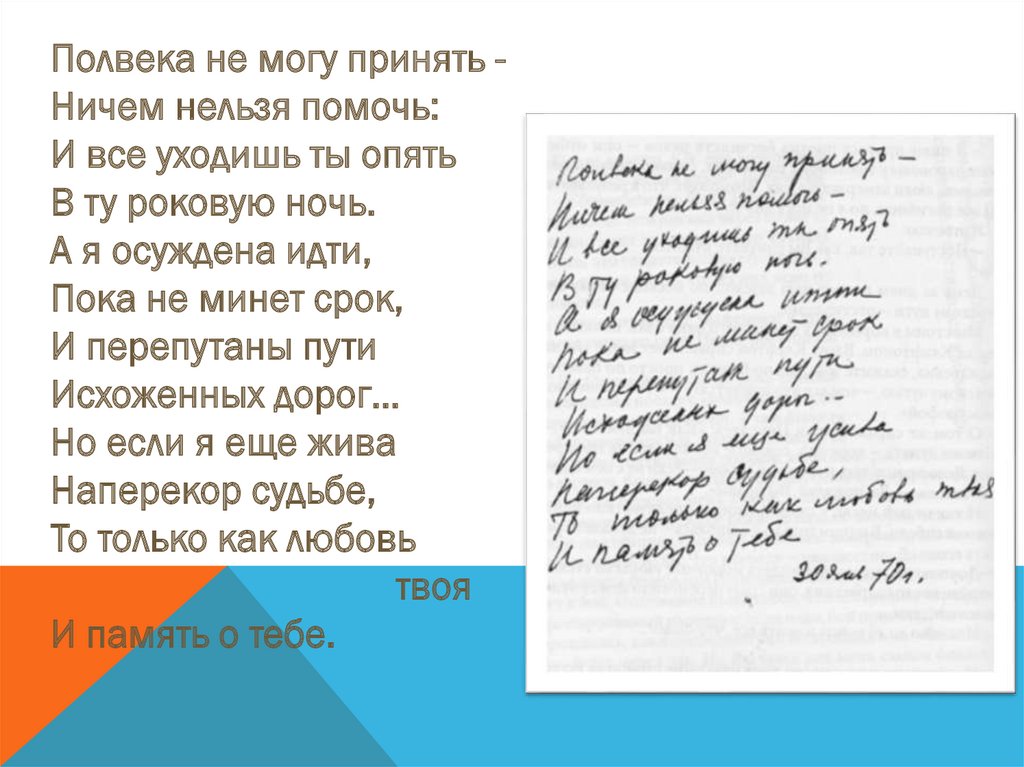 Полвека не могу принять -
Ничем нельзя помочь:
И все уходишь ты опять
В ту роковую ночь.
А я осуждена идти,
Пока не минет срок,
И перепутаны пути
Исхоженных дорог...
Но если я еще жива
Наперекор судьбе,
То только как любовь
твоя
И память о тебе.
Полвека не могу принять –
Ничем нельзя помочь –
И все уходишь ты опять
В ту роковую ночь.
А я осуждена идти
Пока не минет срок
И перепутаны пути
Исхоженных дорог...
Но если я еще жива
Наперекор судьбе,
То только как любовь твоя
И память о тебе
30 янв 70 г.